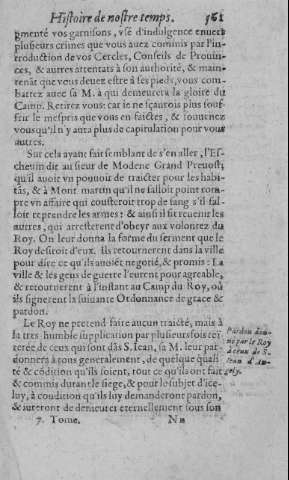 Histoire de nostre temps. 561
gmenté vos garnisons, vsé d'indulgence enuers
plusieurs crimes que vous auez commis par l'in-
troduction de vos Cercles, Conseils de Prouin-
ces, & autres attentats à son authorité, & main-
tenāt que vous deuez estre à ses pieds, vous com-
battez auec sa M. à qui demeurera la gloire du
Camp. Retirez vous: car ie ne sçaurois plus souf-
frir le mespris que vous en faictes, & souuenez
vous qu'il n'y aura plus de capitulation pour vous
autres.
Sur cela ayant fait semblant de s'en aller, l'Es-
cheuin dit au sieur de Modene Grand Preuost,
qu'il auoit vn pouuoir de traicter pour les habi-
tās, & à Mont-martin qu'il ne falloit point rom-
pre vn affaire qui cousteroit trop de sang s'il fal-
loit reprendre les armes: & ainsi il fit reuenir les
autres, qui arresterent d'obeyr aux volontez du
Roy. On leur donna la forme du serment que le
Roy desiroit d'eux. Ils retournerent dans la ville
pour dire ce qu'ils auoiēt negotié, & promis: La
ville & les gens de guerre l'eurent pour agreable,
& retournerent à l'instant au Camp du Roy, où
ils signerent la suiuante Ordonnance de grace &
pardon.
Le Roy ne pretend faire aucun traicté, mais à
la tres-humble supplication par plusieurs fois rei-
terée de ceux qui sont dās S. Iean, sa M. leur par-
donnera à tous generalement, de quelque quali-
té & cōdition qu'ils soient, tout ce qu'ils ont fait
& commis durant le siege, & pour le subjet d'ice-
luy, à condition qu'ils luy demanderont pardon,
& iureront de demeurer eternellement sous son
Pardon don-
né par le Roy
à ceux de S.
Iean d'An-
gely.
7. Tome. Nn